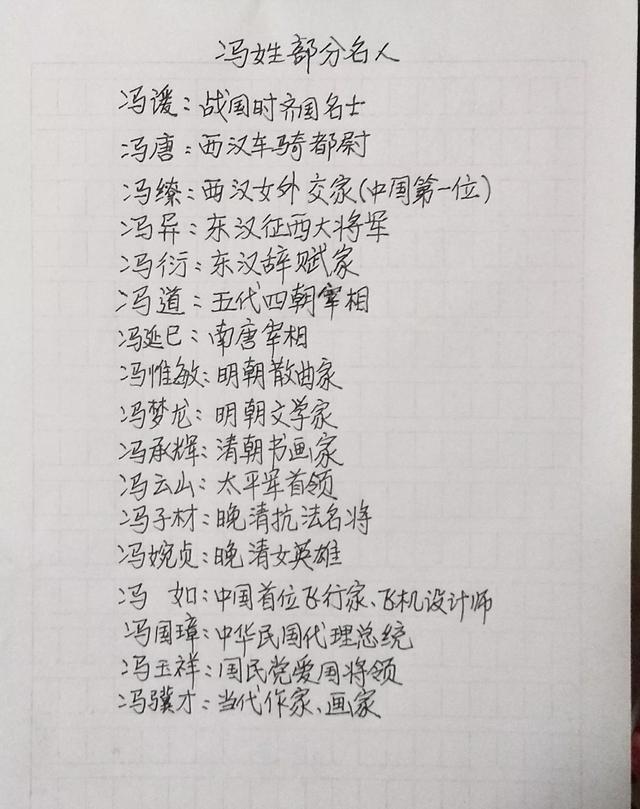 冯姓部分名人
冯谖:战国时齐国名士
冯唐:西汉车骑都尉
冯缭:西汉女外交家(中国第一位)
冯异:东汉征西大将军
冯衍:东汉辞赋家
冯道:五代四朝宰相
冯延巳:南唐宰相
冯惟敏:明朝散曲家
冯梦龙:明朝文学家
冯承辉:清朝书画家
冯云山:太平军首领
冯子材:晚清抗法名将
冯婉贞:晚清女英雄
冯 如:中国首位飞行家、飞机设计师
冯国璋:中华民国代理总统
冯玉祥:国民党爱国将领
冯骥才:当代作家、画家